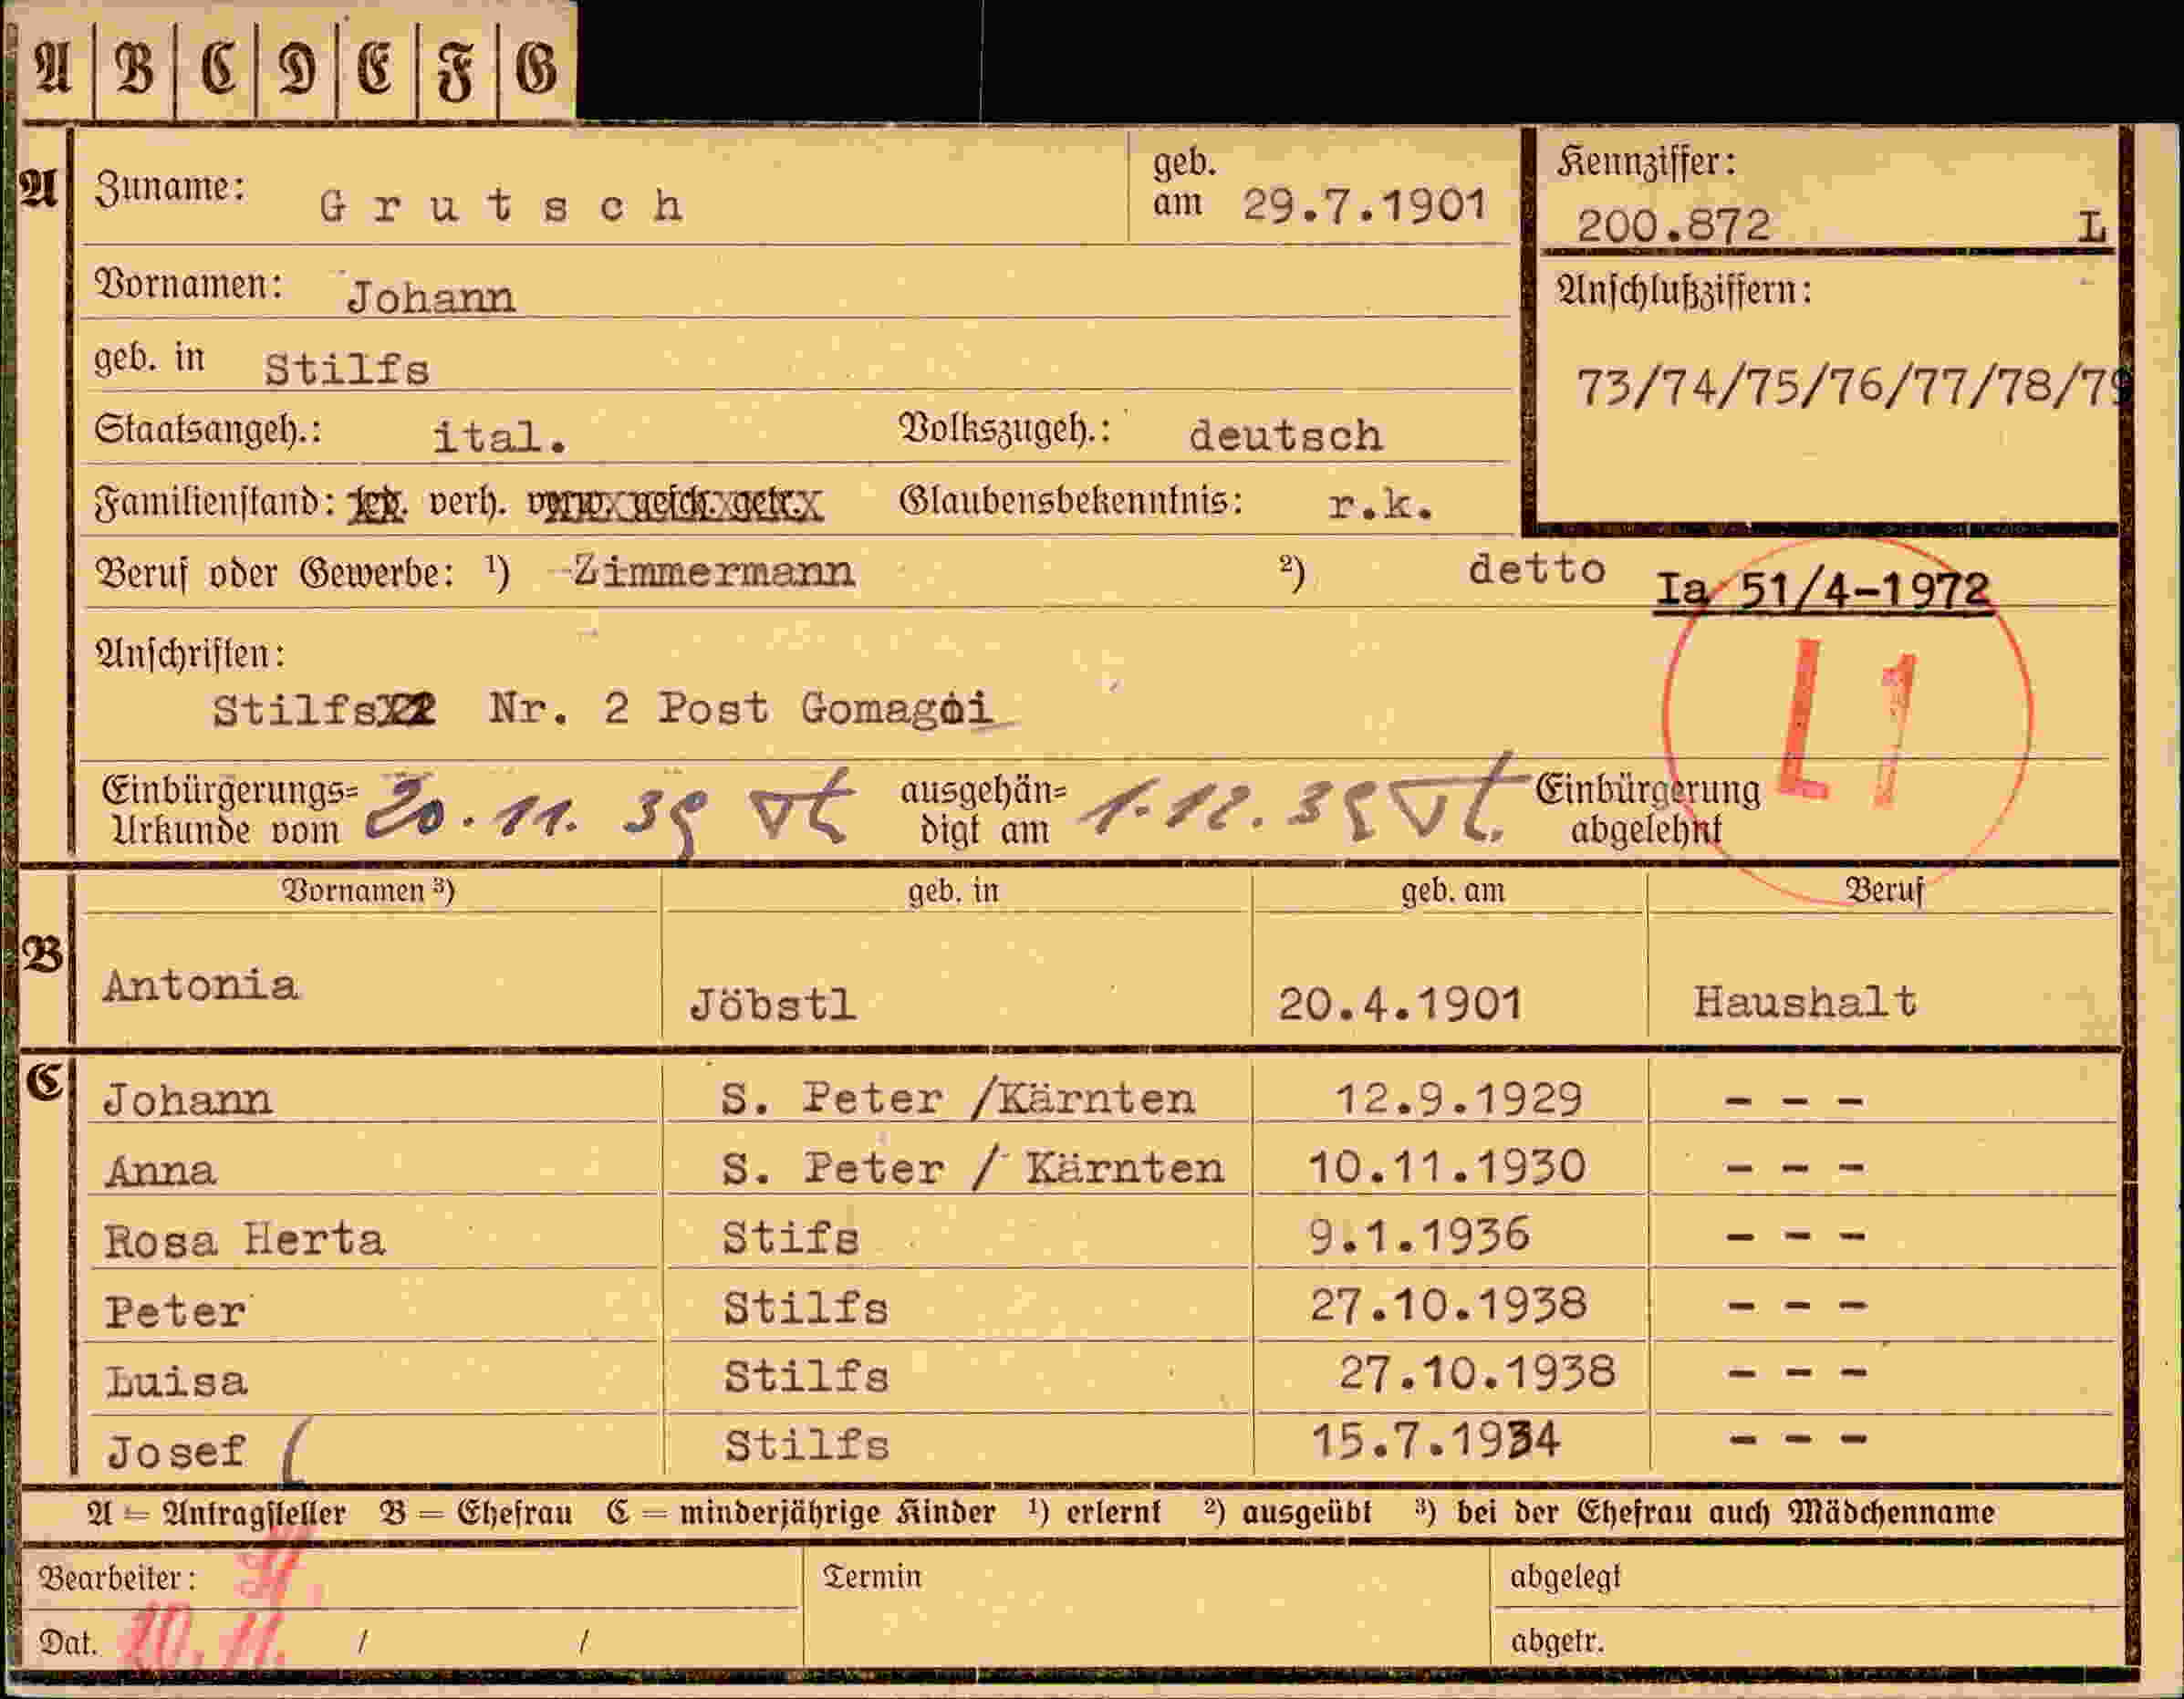 A B C D E F G
A Zuname: Grutsch geb. am 29.7.1901 Kennziffer: 200.872 L
Vornamen: Johann Anschlußziffern:
geb. in Stilfs 73/74/75/76/77/78/79
Staatsangeh.: ital. Volkszugeh.: deutsch
Familienstand: led. verh. verw. gesch. getr. Glaubensbekenntnis: r.k.
Beruf oder Gewerbe: ¹) Zimmermann ²) detto Ia 51/4-1972
Anschriften: L1
Stilfs Nr. 2 Post Gomagoi
Einbürgerungs= ausgehän= Einbürgerung
Urkunde vom 20.11.39 digt am 1.12.39 abgelehnt
Vornamen ³) geb. in geb. am Beruf
B Antonia Jöbstl 20.4.1901 Haushalt
C Johann S. Peter /Kärnten 12.9.1929 - - -
Anna S. Peter / Kärnten 10.11.1930 - - -
Rosa Herta Stifs 9.1.1936 - - -
Peter Stilfs 27.10.1938 - - -
Luisa Stilfs 27.10.1938 - - -
Josef Stilfs 15.7.1934 - - -
A = Antragsteller B = Ehefrau C = minderjährige Kinder ¹) erlernt ²) ausgeübt ³) bei der Ehefrau auch Mädchenname
Bearbeiter: Termin abgelegt
Dat. 20.11. / / abgetr.